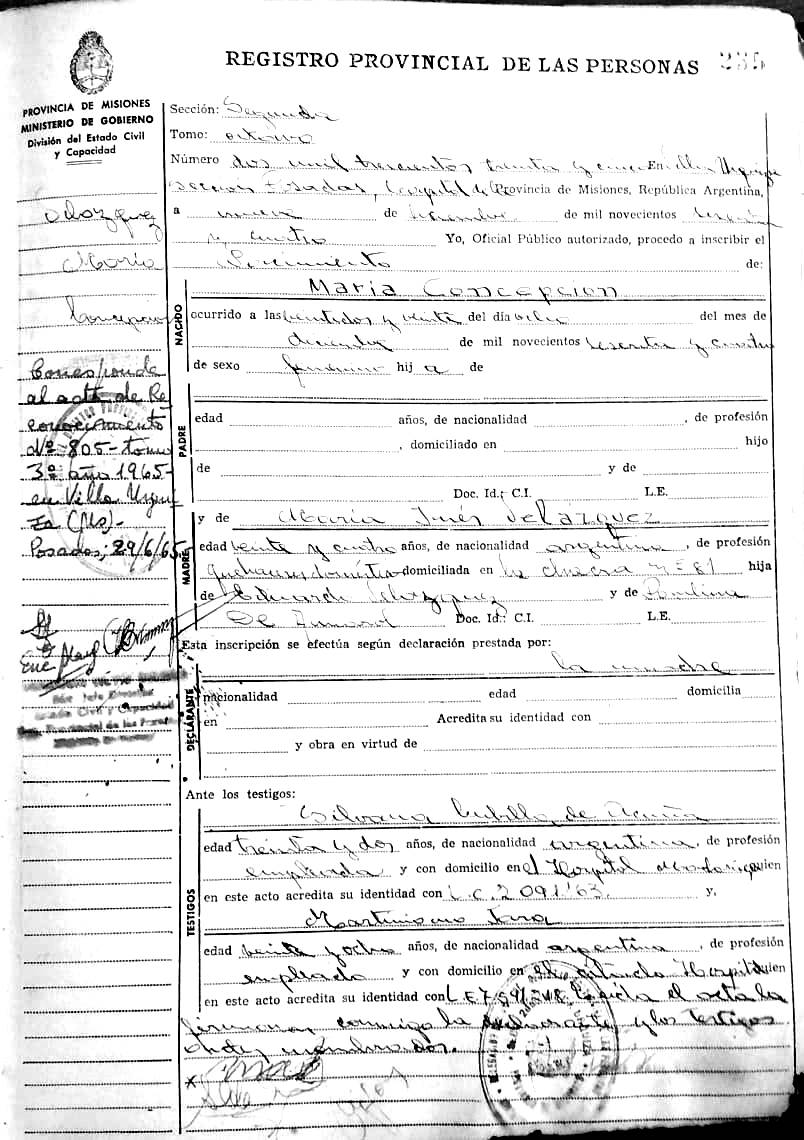 REGISTRO PROVINCIAL DE LAS PERSONAS
235
PROVINCIA DE MISIONES
MINISTERIO DE GOBIERNO
División del Estado Civil
y Capacidad
Sección: Segunda
Tomo: octavo
Número dos mil trescientos treinta y cinco En Villa Urquiza
Sección Posadas, Capital de Provincia de Misiones, República Argentina,
a nueve de diciembre de mil novecientos sesenta
y cuatro Yo, Oficial Público autorizado, procedo a inscribir el
Nacimiento de:
NACIDO
Maria Concepcion
ocurrido a las veintidos y veinte del día ocho del mes de
diciembre de mil novecientos sesenta y cuatro
de sexo femenino hij a de
PADRE
edad años, de nacionalidad , de profesión
, domiciliado en hijo
de y de
Doc. Id.: C.I. L.E.
MADRE
y de María Inés Velázquez
edad veinte y cuatro años, de nacionalidad argentina, de profesión
quehaceres domésticos domiciliada en la chacra nº 81 hija
de Eduardo Velázquez y de
De Doc. Id.: C.I. L.E.
Esta inscripción se efectúa según declaración prestada por:
la madre
DECLARANTE
nacionalidad edad domicilia
en Acredita su identidad con
y obra en virtud de
Ante los testigos:
TESTIGOS
de Acuña
edad treinta y dos años, de nacionalidad argentina, de profesión
empleada y con domicilio en el Hospital quien
en este acto acredita su identidad con L.C. 2.091.163. y,
edad veinte y ocho años, de nacionalidad argentina, de profesión
empleado y con domicilio en el citado Hospital quien
en este acto acredita su identidad con L.E. Leída el acta la
firman conmigo la declarante y los testigos
antes nombrados.
Velazquez
María
Concepcion
Corresponde
al acta de Re
conocimiento
Nº 805 - tomo
3º año 1965-
en Villa Urqui
za (Ms)-
Posadas; 29/6/65